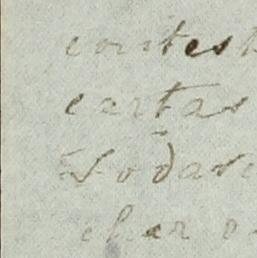 contest
cartas
Todas
char o